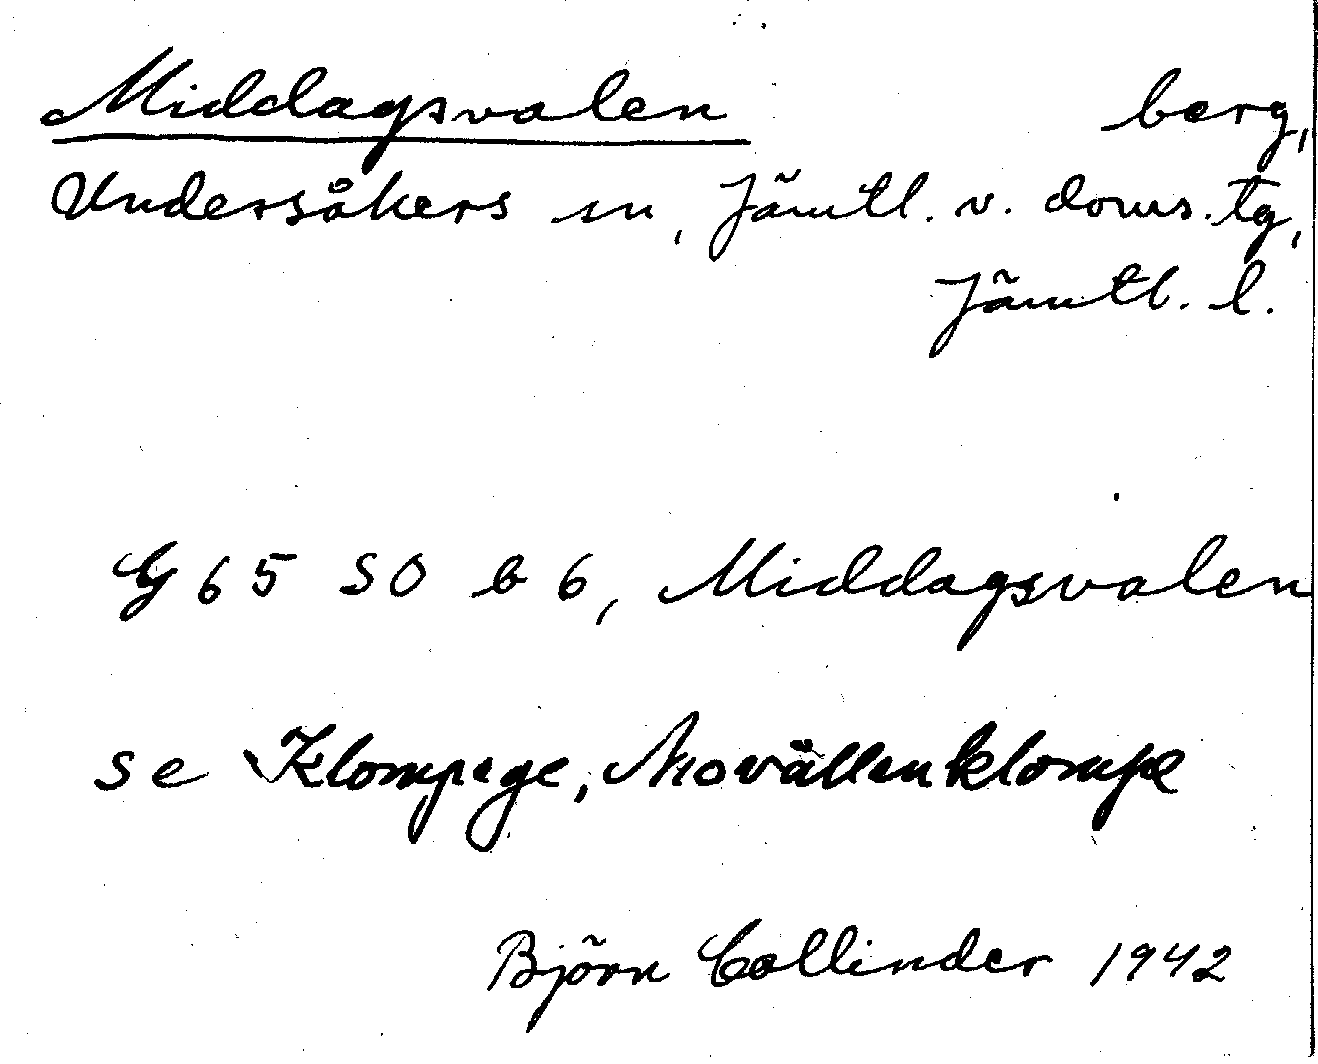 Middagsvalen berg,
Undersåkers sn, Jämtl. v. doms. tg,
Jämtl. l.
G 65 SO b 6, Middagsvalen
se Klompege, Movällenklompe
Björn Collinder 1942